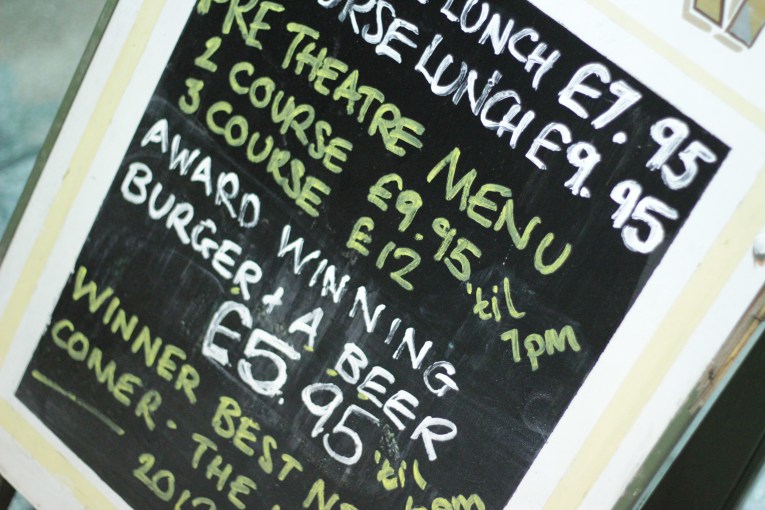 LUNCH £7.95
COURSE LUNCH £9.95
PRE THEATRE MENU
2 COURSE £9.95 'til
3 COURSE £12 7pm
AWARD WINNING
BURGER + A BEER
£5.95 'til
WINNER BEST NEW
COMER - THE